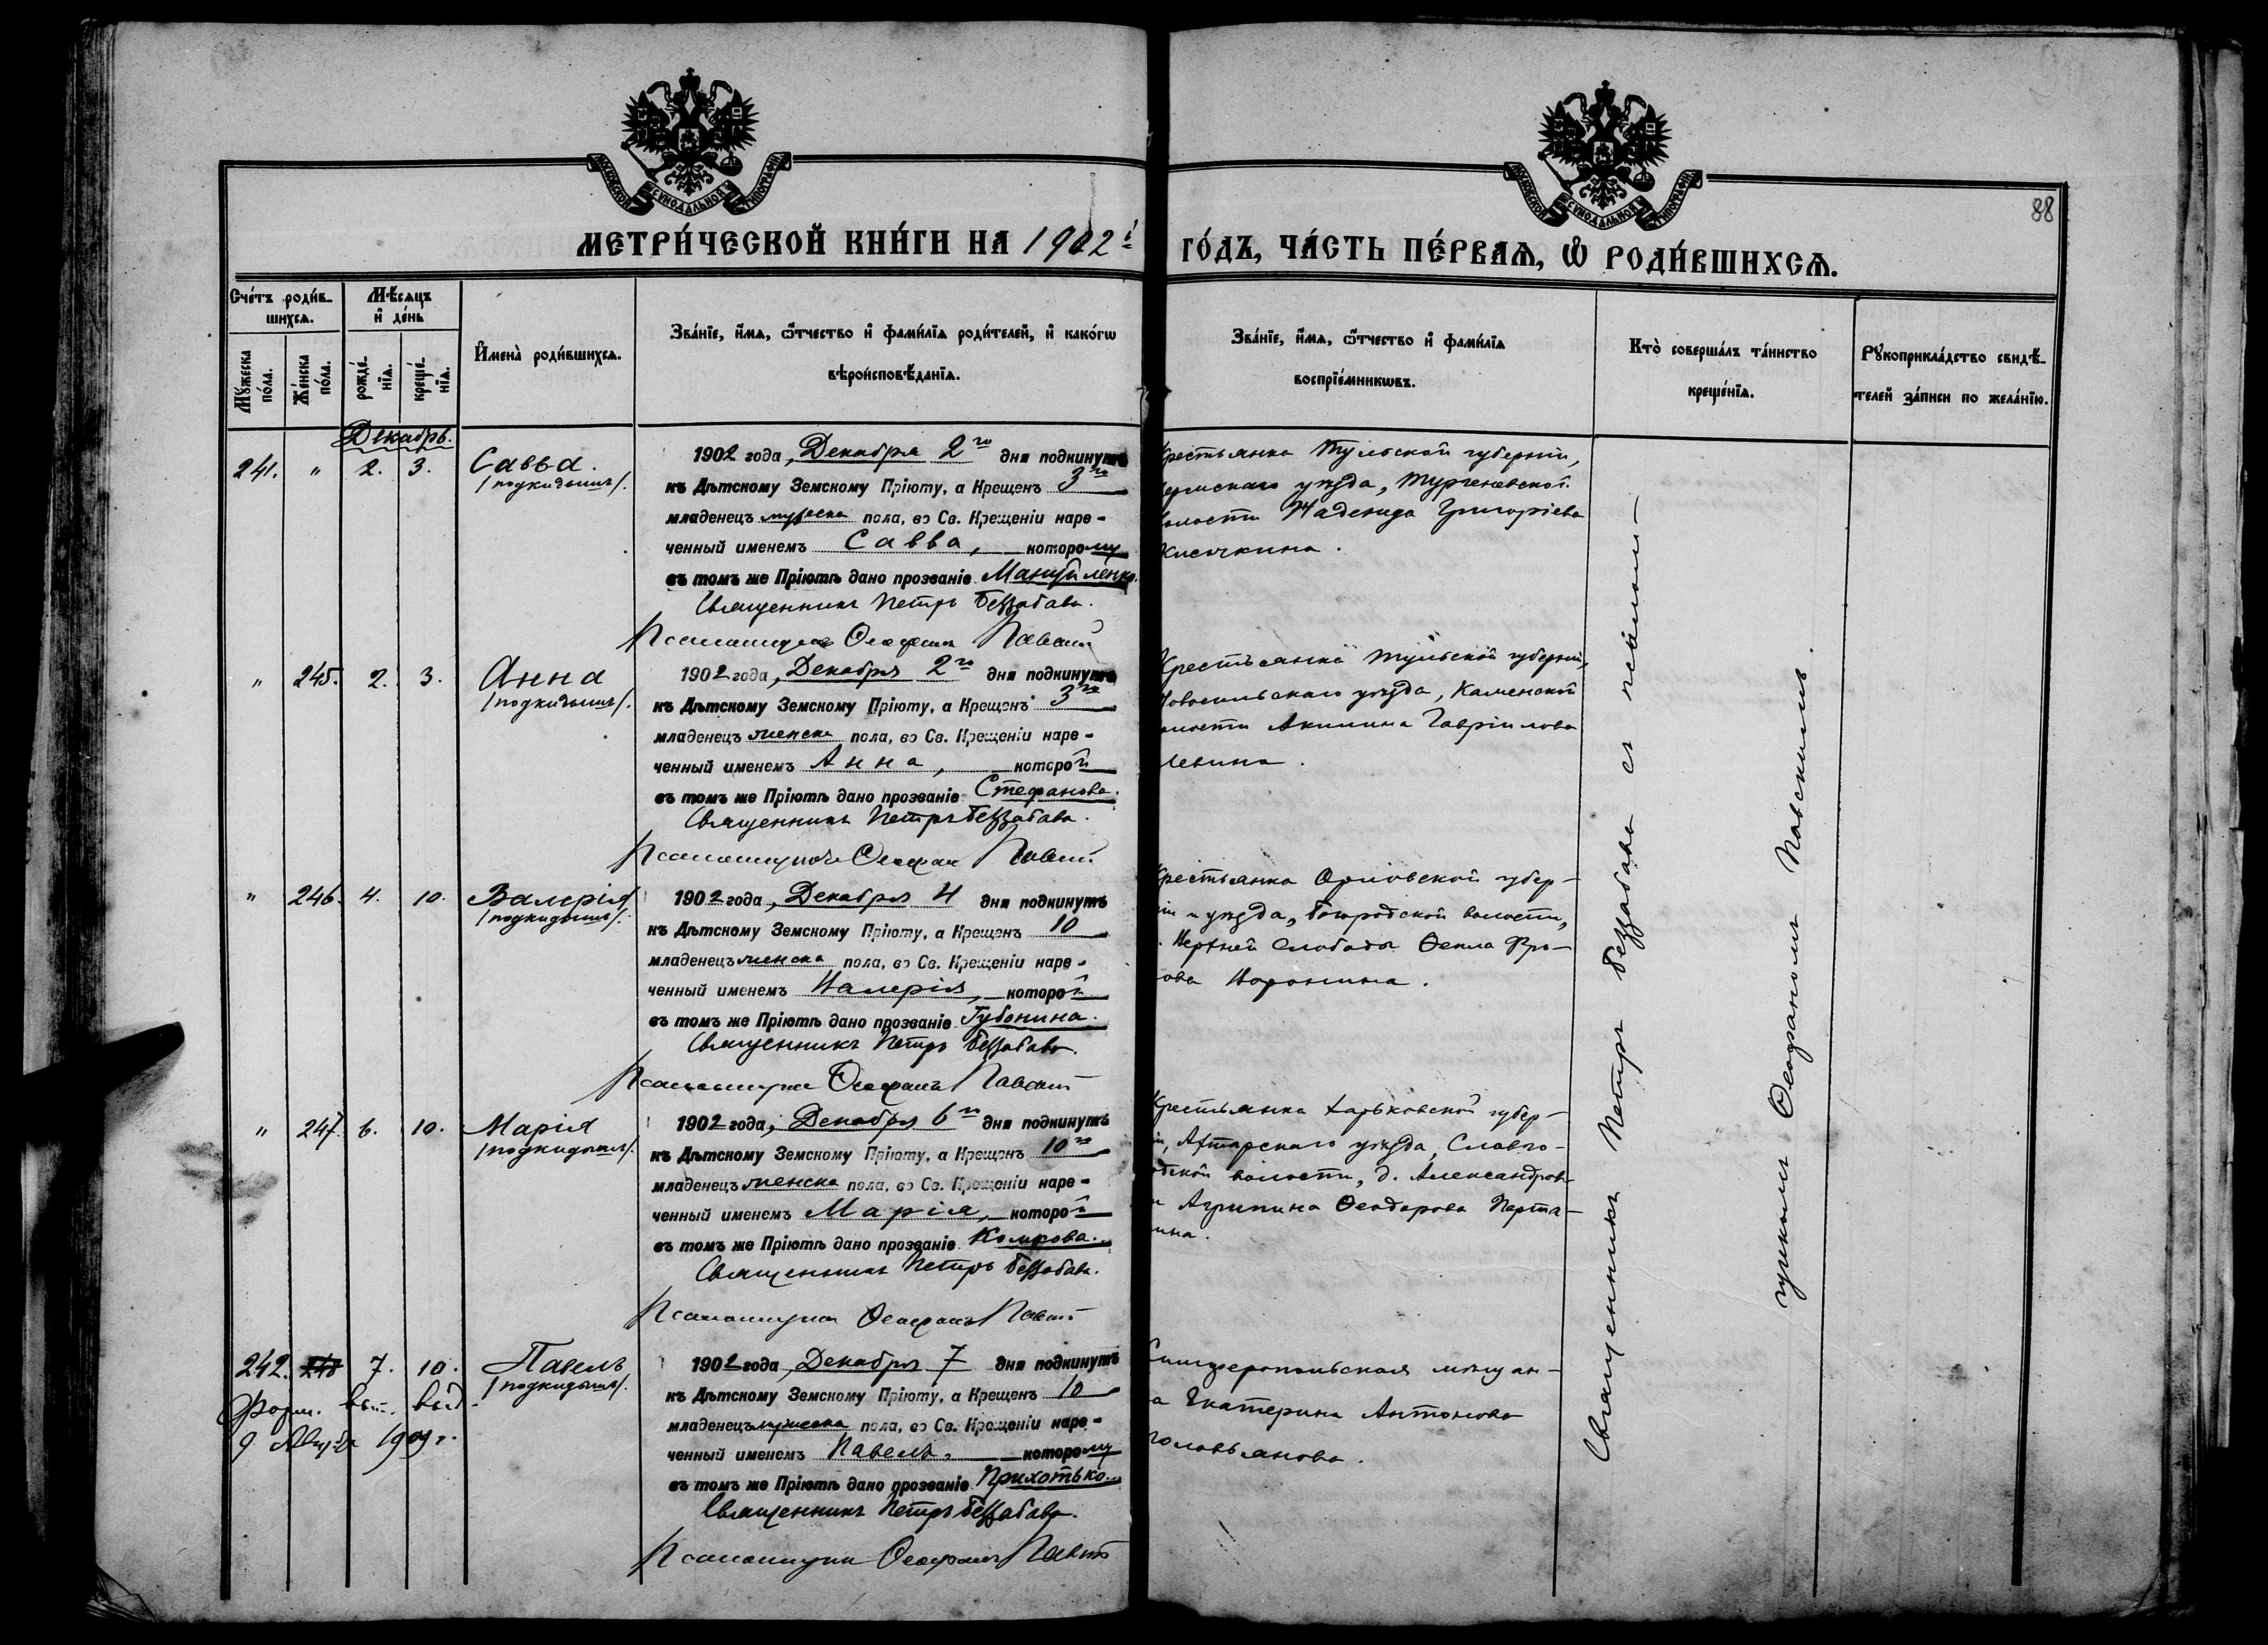 МОСКОВСКОЙ СѴНОДАЛЬНОЙ ТИПОГРАФІИ
МОСКОВСКОЙ СѴНОДАЛЬНОЙ ТИПОГРАФІИ
88
МЕТРИ́ЧЕСКОЙ КНИ́ГИ НА 1902й ГО́ДЪ, ЧА́СТЬ ПЕ́РВАѦ, Ѡ РОДИ́ВШИХСѦ.
Сче́тъ роди́в-
шихсѧ.
Мѣ́сѧцъ
и де́нь
Мꙋ́жеска по́ла.
Же́нска по́ла.
рожде́-
нїѧ.
креще́-
нїѧ.
И҆мена̀ роди́вшихсѧ.
Зва́нїе, и҆́мѧ, ѻ҆́тчество и҆ фами́лїѧ роди́телей, и҆ како́гѡ
вѣроисповѣ́данїѧ.
Зва́нїе, и҆́мѧ, ѻ҆́тчество и҆ фами́лїѧ
воспрїе́мникѡвъ.
Кто̀ соверша́лъ та́инство
креще́нїѧ.
Рꙋкоприкла́дство свидѣ́-
телей за́писи по жела́нїю.
Декабрь.
241. " 2. 3. Савва.
/подкидышъ/.
1902 года, Декабря 2го дня подкинутъ
къ Дѣтскому Земскому Пріюту, а Крещенъ 3го
младенецъ мужеска пола, во Св. Крещеніи наре-
ченный именемъ Савва, которому
въ томъ же Пріютѣ дано прозваніе
Священникъ Петръ Беззабава.
Псаломщикъ Ѳеофанъ
Крестьянка Тульской губерніи,
уѣзда, Тургеневской
волости Надежда Григоріева
" 245. 2. 3. Анна
/подкидышъ/.
1902 года, Декабря 2го дня подкинутъ
къ Дѣтскому Земскому Пріюту, а Крещенъ 3го
младенецъ женска пола, во Св. Крещеніи наре-
ченный именемъ Анна, которой
въ томъ же Пріютѣ дано прозваніе Стефанова.
Священникъ Петръ Беззабава.
Псаломщикъ Ѳеофанъ
Крестьянка Тульской губерніи,
Новосильскаго уѣзда, Каменской
волости Акилина Гавріилова
Левина.
" 246. 4. 10. Валерія
/подкидышъ/.
1902 года, Декабря 4 дня подкинутъ
къ Дѣтскому Земскому Пріюту, а Крещенъ 10
младенецъ женска пола, во Св. Крещеніи наре-
ченный именемъ Валерія, которой
въ томъ же Пріютѣ дано прозваніе Губонина.
Священникъ Петръ Беззабава.
Псаломщикъ Ѳеофанъ
Крестьянка Орловской губер-
ніи и уѣзда, Богородской волости,
Слободы Ѳекла
Воронина.
" 247. 6. 10. Марія
/подкидышъ/.
1902 года, Декабря 6го дня подкинутъ
къ Дѣтскому Земскому Пріюту, а Крещенъ 10го
младенецъ женска пола, во Св. Крещеніи наре-
ченный именемъ Марія, которой
въ томъ же Пріютѣ дано прозваніе Комрова.
Священникъ Петръ Беззабава.
Псаломщикъ Ѳеофанъ
Крестьянка Харьковской губер-
ніи, Ахтырскаго уѣзда, Славго-
родской волости, д. Александров-
ки Агрипина Ѳеодорова
242. 248 7. 10. Павелъ
/подкидышъ/.
1909 г.
1902 года, Декабря 7 дня подкинутъ
къ Дѣтскому Земскому Пріюту, а Крещенъ 10
младенецъ мужеска пола, во Св. Крещеніи наре-
ченный именемъ Павелъ, которому
въ томъ же Пріютѣ дано прозваніе Прихотько.
Священникъ Петръ Беззабава.
Псаломщикъ Ѳеофанъ
Симферопольская мѣщан-
ка Екатерина Антонова
Священникъ Петръ Беззабава съ псалом-
щикомъ Ѳеофаномъ Павскимъ.